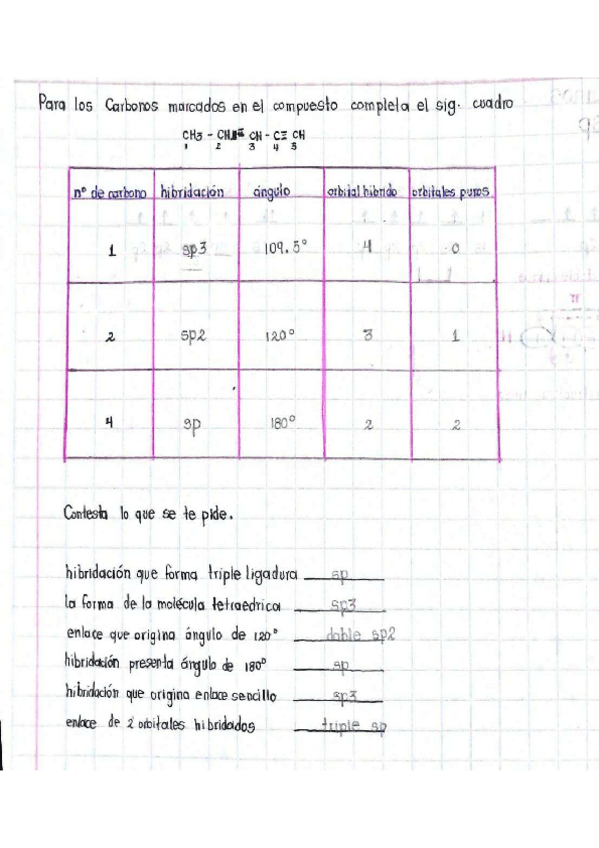 Para los Carbonos marcados en el compuesto completa el sig. cuadro
CH3 - CH = CH - C ≡ CH
1 2 3 4 5
n° de carbono hibridación ángulo orbital hibrido orbitales puros
1 sp3 109.5° 4 0
2 sp2 120° 3 1
4 sp 180° 2 2
Contesta lo que se te pide.
hibridación que forma triple ligadura sp
la forma de la molécula tetraedrica sp3
enlace que origina ángulo de 120° doble sp2
hibridación presenta ángulo de 180° sp
hibridación que origina enlace sencillo sp3
enlace de 2 orbitales hibridados triple sp